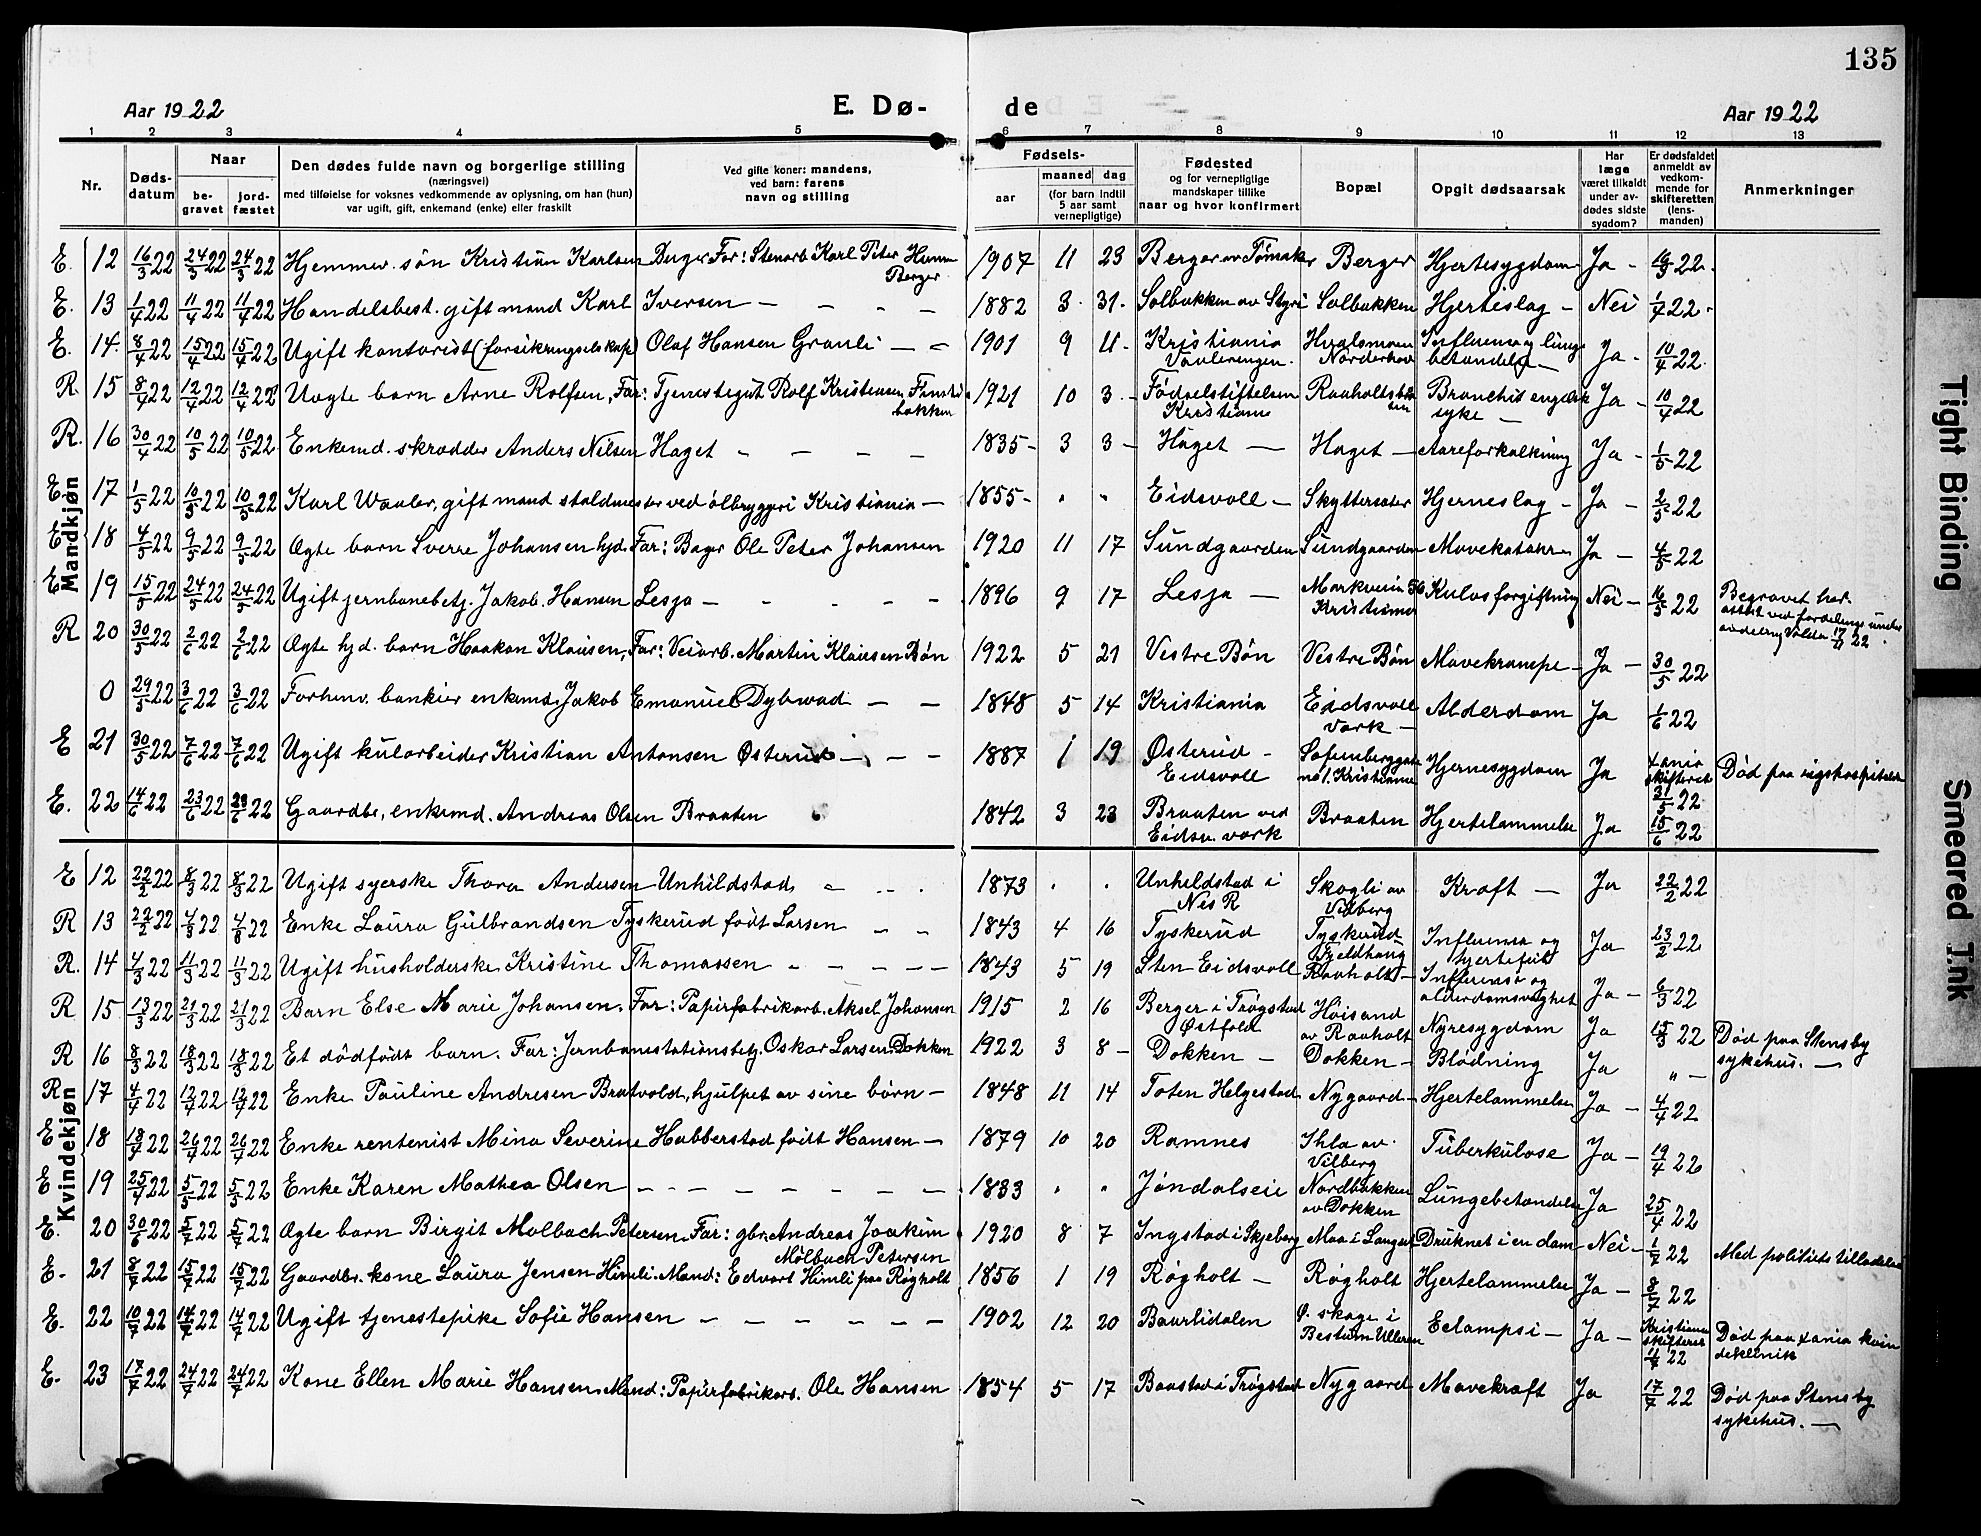 135
Aar 1922 E. Dø- de Aar 1922
1 2 3 4 5 6 7 8 9 10 11 12 13
Nr. Døds-datum Naar be-gravet jord-fæstet Den dødes fulde navn og borgerlige stilling (næringsvei) med tilføielse for voksnes vedkommende av oplysning, om han (hun) var ugift, gift, enkemand (enke) eller fraskilt Ved gifte koner: mandens, ved barn: farens navn og stilling Fødsels- aar maaned dag (for barn indtil 5 aar samt vernepligtige) Fødested og for vernepligtige mandskaper tillike naar og hvor konfirmert Bopæl Opgit dødsaarsak Har læge været tilkaldt under av-dødes sidste sygdom? Er dødsfaldet anmeldt av vedkom-mende for skifteretten (lens-manden) Anmerkninger
Mandkjøn
E. 12 16/3 22 24/3 22 24/3 22 Hjemmev. søn Kristian Karlsen Berger Far: Stenarb. Karl Peter Berger 1907 11 23 Berger Berger Hjertesygdom Ja - 22.
E. 13 1/4 22 11/4 22 11/4 22 Handelsbest. gift mand Karl Iversen - - - - 1882 3. 31. Solbakken av Styri Solbakken Hjerteslag - Nei 1/4 22.
E. 14. 8/4 22 15/4 22 15/4 22 Ugift kontorist (forsikringselskap) Olaf Hansen Granli - - 1901 9 11. Kristiania Vaalerengen. Norderhov Influensa og lunge betændelse - Ja - 10/4 22.
R 15 8/4 22 12/4 22 12/4 22 Uægte barn Arne Rolfsen, Far: Tjenestegut Rolf Kristensen 1921 10 3 - Fødselstiftelsen Kristiania Bronchit engelsk syke - Ja - 10/4 22
R. 16 30/4 22 10/5 22 10/5 22 Enkemd. skrædder Anders Nilsen Haget - - - - 1835 - 3 3 - Haget - Haget - Aareforkalkning Ja - 1/5 22
E 17 1/5 22 10/5 22 10/5 22 Karl Waaler, gift mand staldmester ved ølbryggeri Kristiania - 1855 - " " Eidsvoll - Skyttersæter Hjerneslag - Ja - 2/5 22
E 18 4/5 22 9/5 22 9/5 22 Ægte barn Sverre Johansen hjd. Far: Bager Ole Peter Johansen 1920 11 17 Sundgaarden Sundgaarden Mavekatahr - Ja - 4/5 22
E 19 15/5 22 24/5 22 24/5 22 Ugift jernbanebetj. Jakob Hansen Lesja - - - - 1896 9 17 Lesja - Markveien 56 Kristiania Kulosforgiftning Nei - 16/5 22 Begravet her.
R 20 30/5 22 2/6 22 2/6 22 Ægte hjd. barn Haakon Klausen, Far: Veiarb. Martin Klausen Bøn 1922 5 21 Vestre Bøn Vestre Bøn Mavekrampe - Ja - 30/5 22
0 29/5 22 3/6 22 3/6 22 Forhenv. bankier enkemd. Jakob Emanuel Dybwad - - 1848 5 14 Kristiania Eidsvoll Værk - Alderdom Ja 1/6 22
E 21 30/5 22 7/6 22 7/6 22 Ugift kularbeider Kristian Antonsen Østerud - - - 1887 1 19 Østerud - Eidsvoll Kristiania Hjernesygdom Ja Xania skifteret 31/5 22 Død paa rigshospitalet
E. 22 14/6 22 23/6 22 23/6 22 Gaardbr., enkemd. Andreas Olsen Braaten 1842 3 23 Braaten ved Eidsv. værk Braaten Hjertelammelse Ja 15/6 22
Kvindekjøn
E 12 22/2 22 8/3 22 8/3 22 Ugift syerske Thora Andersen Unhildstad 1873 . . Unhildstad i Nes R Skogli av Vilberg Kræft - Ja 22/2 22
R 13 22/2 22 4/3 22 4/3 22 Enke Laura Gulbrandsen Tyskerud født Larsen - - 1843 4 16 Tyskerud Tyskerud Influensa og hjertefeil Ja 23/2 22
R. 14 4/3 22 11/3 22 11/3 22 Ugift husholderske Kristine Thomassen - - - - 1843 5 19 Sten Eidsvoll Raaholt - Influensa og alderdomsvaghet Ja - 6/3 22
R 15 13/3 22 21/3 22 21/3 22 Barn Else Marie Johansen. Far: Papirfabrikarb. Aksel Johansen 1915 2 16 Berger i Trøgstad Østfold Høisand av Raaholt Nyresygdom Ja 15/3 22 Død paa Stensby sykehus. -
R 16 8/3 22 18/3 22 18/3 22 Et dødfødt barn. Far: Jernbanestationsbetj. Oskar Larsen Dokken 1922 3 8 - Dokken - Dokken - Blødning Ja " -
R 17 4/4 22 12/4 22 12/4 22 Enke Pauline Andresen Bratvold, hjulpet av sine børn - 1848 11 14 Toten Helgestad Nygaard - Hjertelammelse Ja - 4/4 22
E 18 18/4 22 26/4 22 26/4 22 Enke rentenist Mina Severine Habberstad født Hansen - 1879 10 20 Ramnes Ihla av Vilberg Tuberkulose Ja - 19/4 22
E 19 25/4 22 5/5 22 5/5 22 Enke Karen Mathea Olsen - - - - - - - 1833 " " Jøndalseie Nordbakken av Dokken Lungebetændelse Ja 25/4 22
E. 20 30/6 22 5/7 22 5/7 22 Ægte barn Birgit Molbach Petersen. Far: gbr. Andreas Joakim Molbach Petersen 1920 8 7 Ingstad i Skjeberg Druknet i en dam Nei - 1/7 22 Med politiets tilladelse
E. 21 8/7 22 15/7 22 15/7 22 Gaardbr. kone Laura Jensen Himli. Mand: Edvart Himli paa Røgholt 1856 1 19 Røgholt - Røgholt Hjertelammelse Ja - 8/7 22
E. 22 10/7 22 14/7 22 14/7 22 Ugift tjenestepike Sofie Hansen - - - - - - 1902 12 20 Baarlidalen Ø. skage i Bestum Ulleren Eclampsi - Ja - Kristiania skifteret 11/7 22 Død paa Xania kvindeklinik
E. 23 17/7 22 24/7 22 24/7 22 Kone Ellen Marie Hansen. Mand: Papirfabrikarb. Ole Hansen 1854 5 17 Baastad i Trøgstad Nygaard Mavekræft Ja 17/7 22 Død paa Stensby sykehus. -
Tight Binding
Smeared Ink